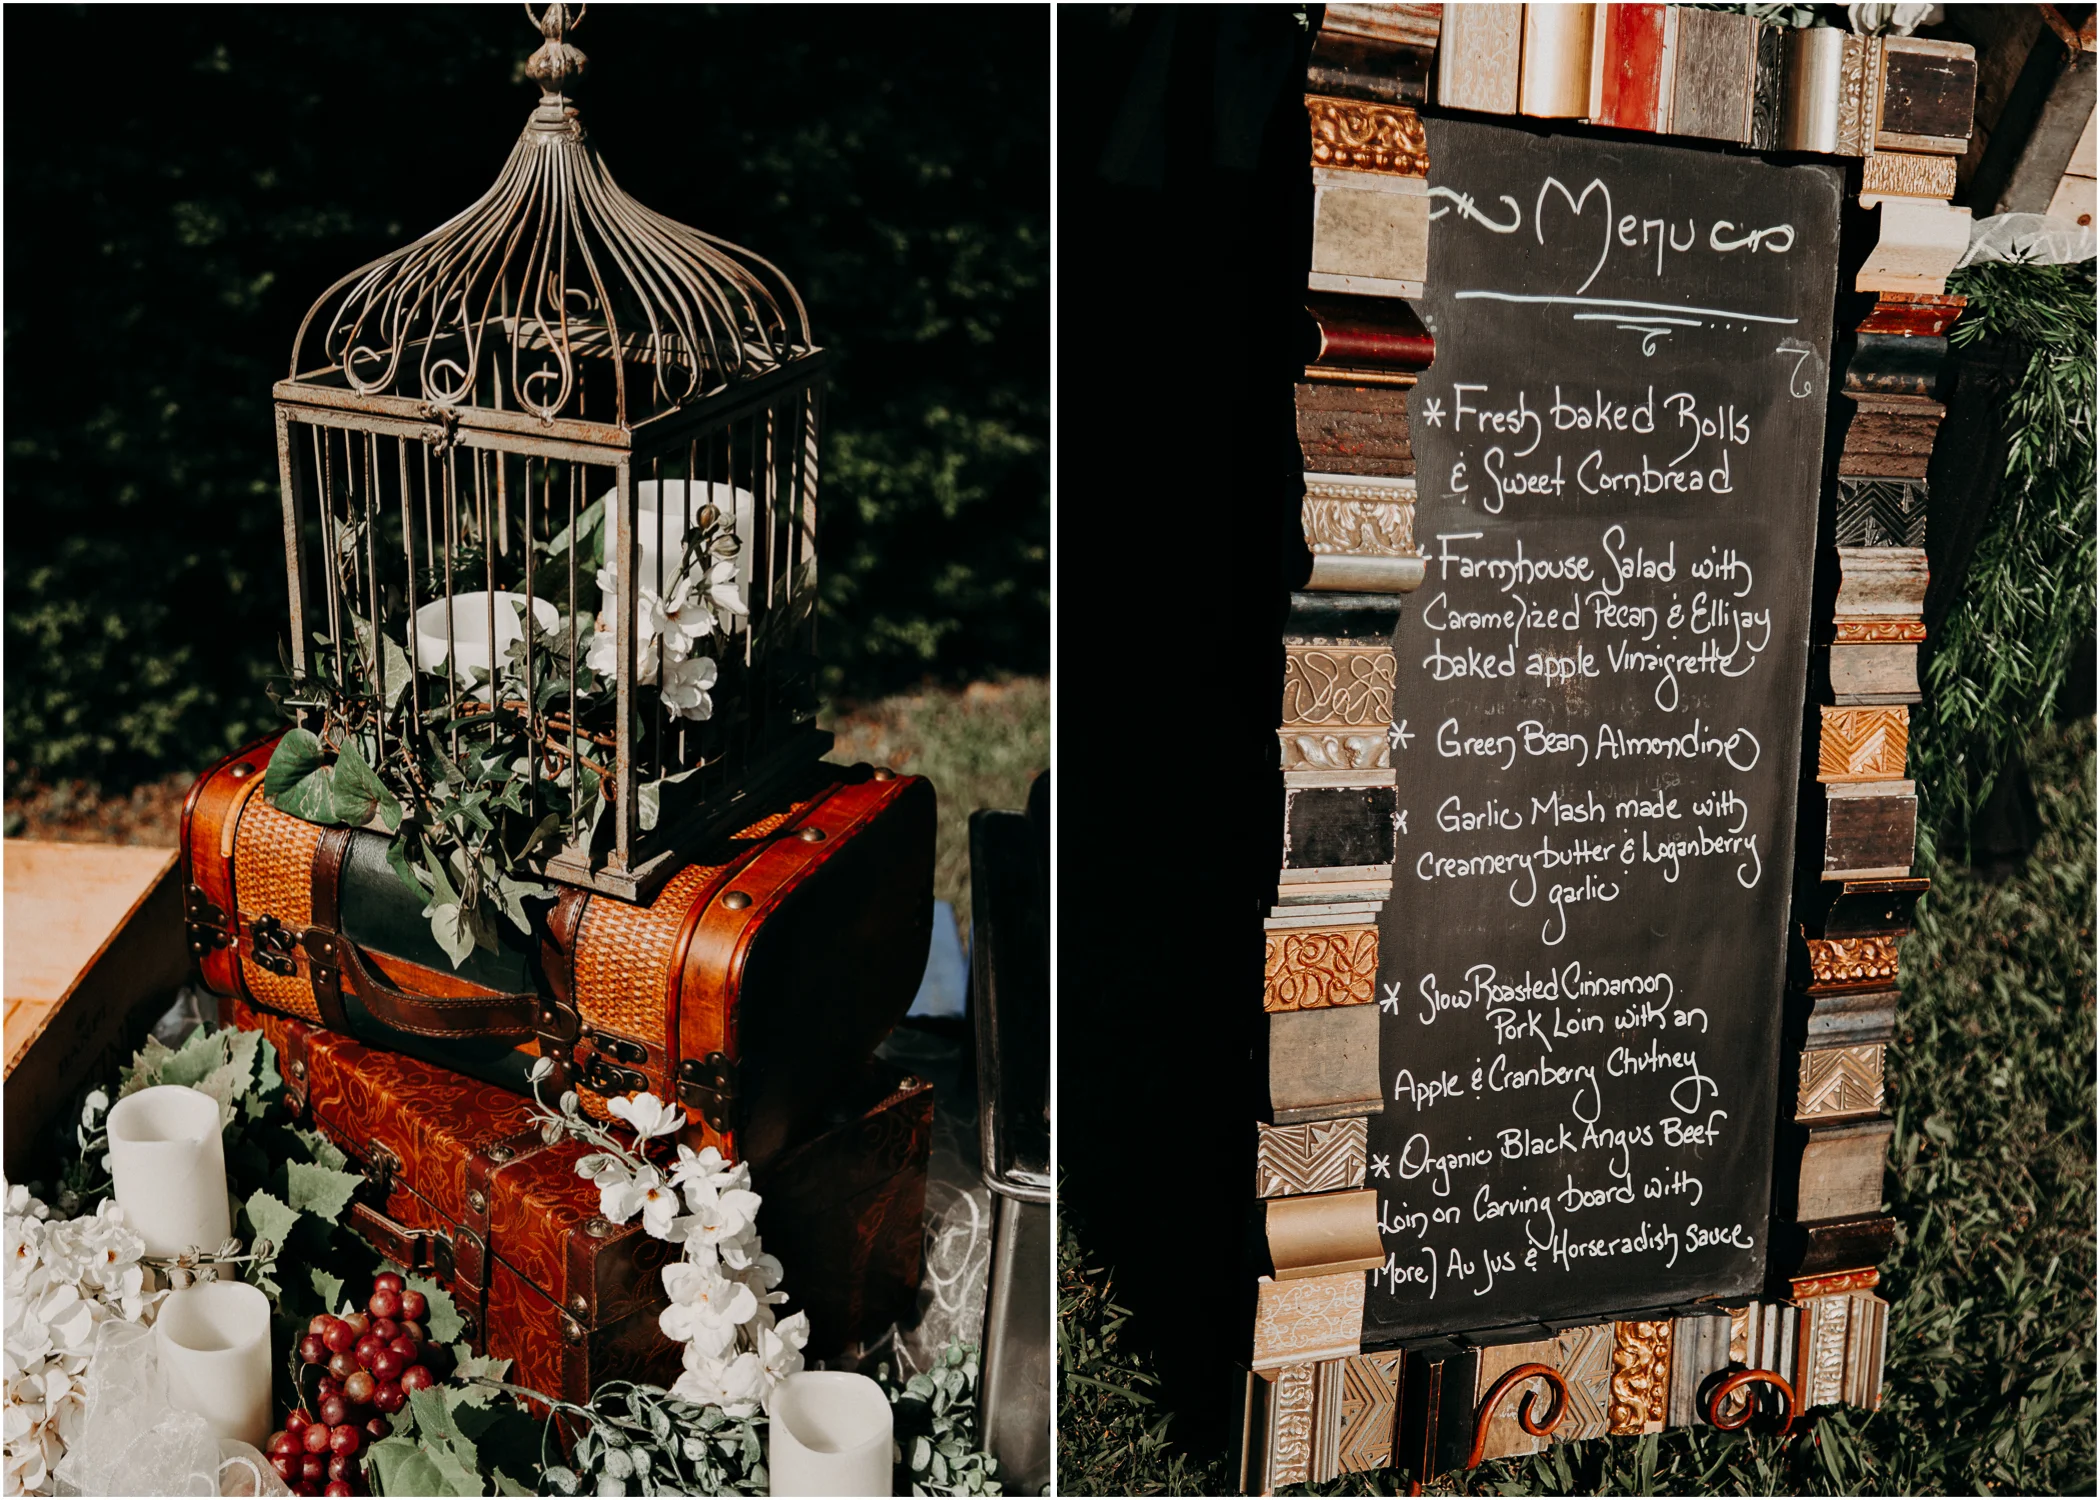 Menu
* Fresh baked Rolls
& Sweet Cornbread
Farmhouse Salad with
Caramelized Pecan & Ellijay
baked apple Vinaigrette
* Green Bean Almondine
* Garlic Mash made with
Creamery butter & Loganberry
garlic
* Slow Roasted Cinnamon
Pork Loin with an
Apple & Cranberry Chutney
* Organic Black Angus Beef
Loin on Carving board with
More) Au Jus & Horseradish sauce